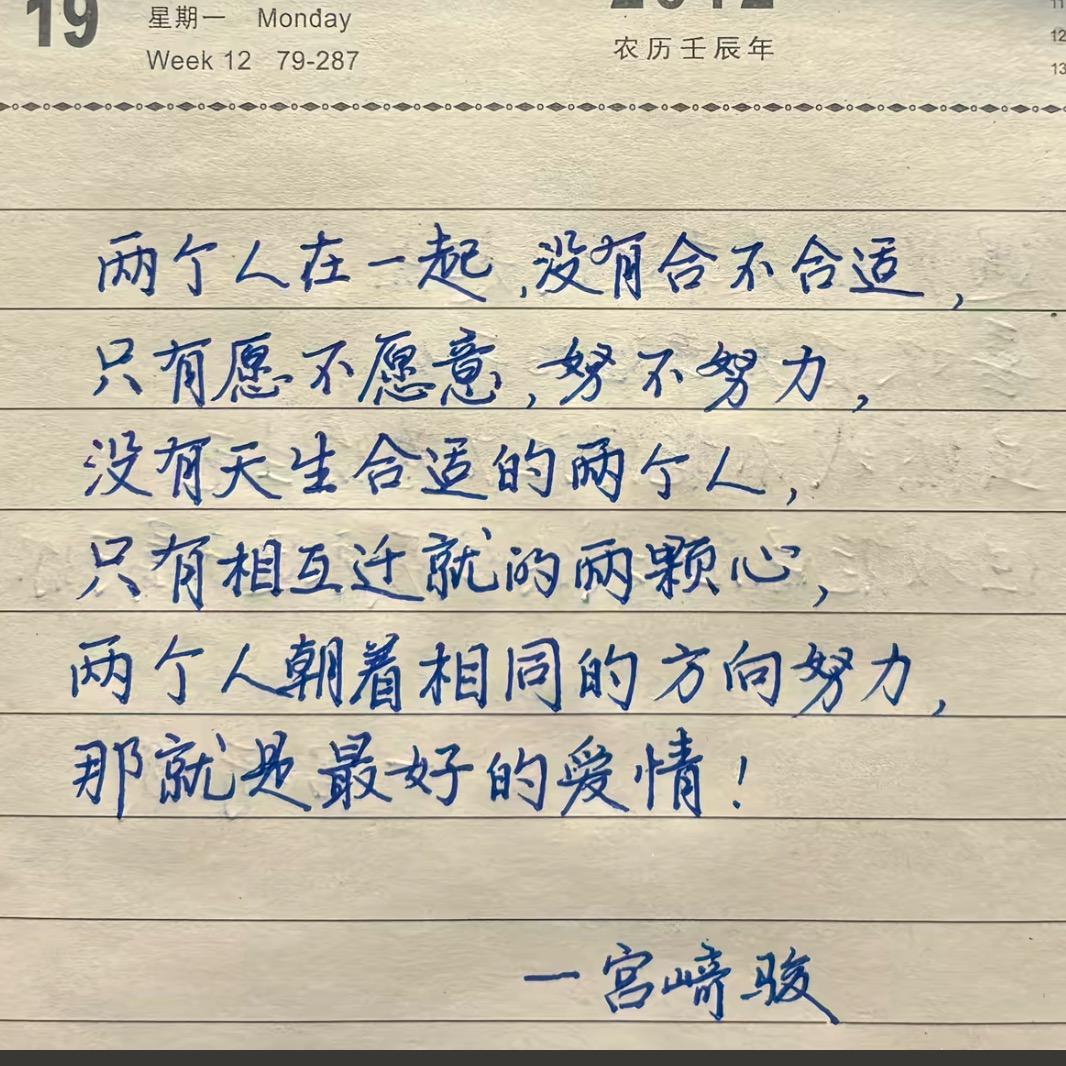 19 星期一 Monday
Week 12 79-287
2012
农历壬辰年
11
12
13
两个人在一起,没有合不合适,
只有愿不愿意,努不努力,
没有天生合适的两个人,
只有相互迁就的两颗心,
两个人朝着相同的方向努力,
那就是最好的爱情!
一宫崎骏